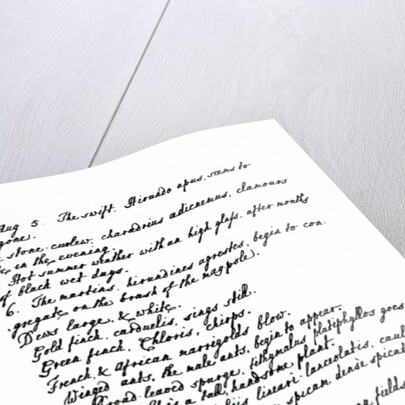 Aug 5. The swift, Hirundo apus, seems to
gone.
stone-curlew, charadrius adicnemus, clamours
in the evening.
Hot summer weather with an high glass, after months
of black wet days.
6. The martins, hirundines agrestes, begin to con-
gregate on the boast of the maypole.
Dews large, & white.
Gold finch, carduelis, sings still.
Green finch, Chloris, chirps.
French, & African marrigolds blow.
Winged ants, the male ants, begin to appear.
broad-leaved spurge, tithymalus platiphyllos goes
is a tall handsome plant.
lineari lanceolatis, caul
spican dense spicat
fields